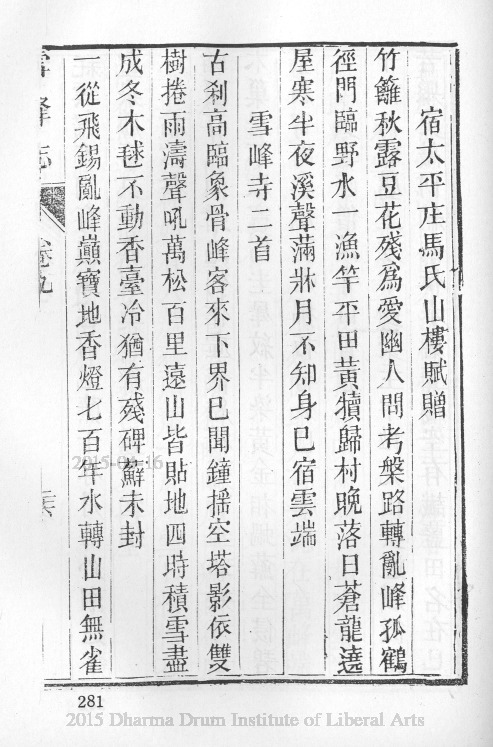 宿太平庄馬氏山樓賦贈
竹籬秋露豆花殘爲愛幽人問考槃路轉亂峰孤鶴
徑門臨野水一漁竿平田黃犢歸村晚落日蒼龍遶
屋寒半夜溪聲滿牀月不知身已宿雲端
雪峰寺二首
古刹高臨象骨峰客來下界巳聞鐘搖空塔影依雙
樹捲雨濤聲吼萬松百里遠山皆貼地四時積雪盡
成冬木毬不動香臺冷猶有殘碑蘚未封
一從飛錫亂峰巔寶地香燈七百年水轉山田無雀
雪峰志
卷九
281
2015 Dharma Drum Institute of Liberal Arts